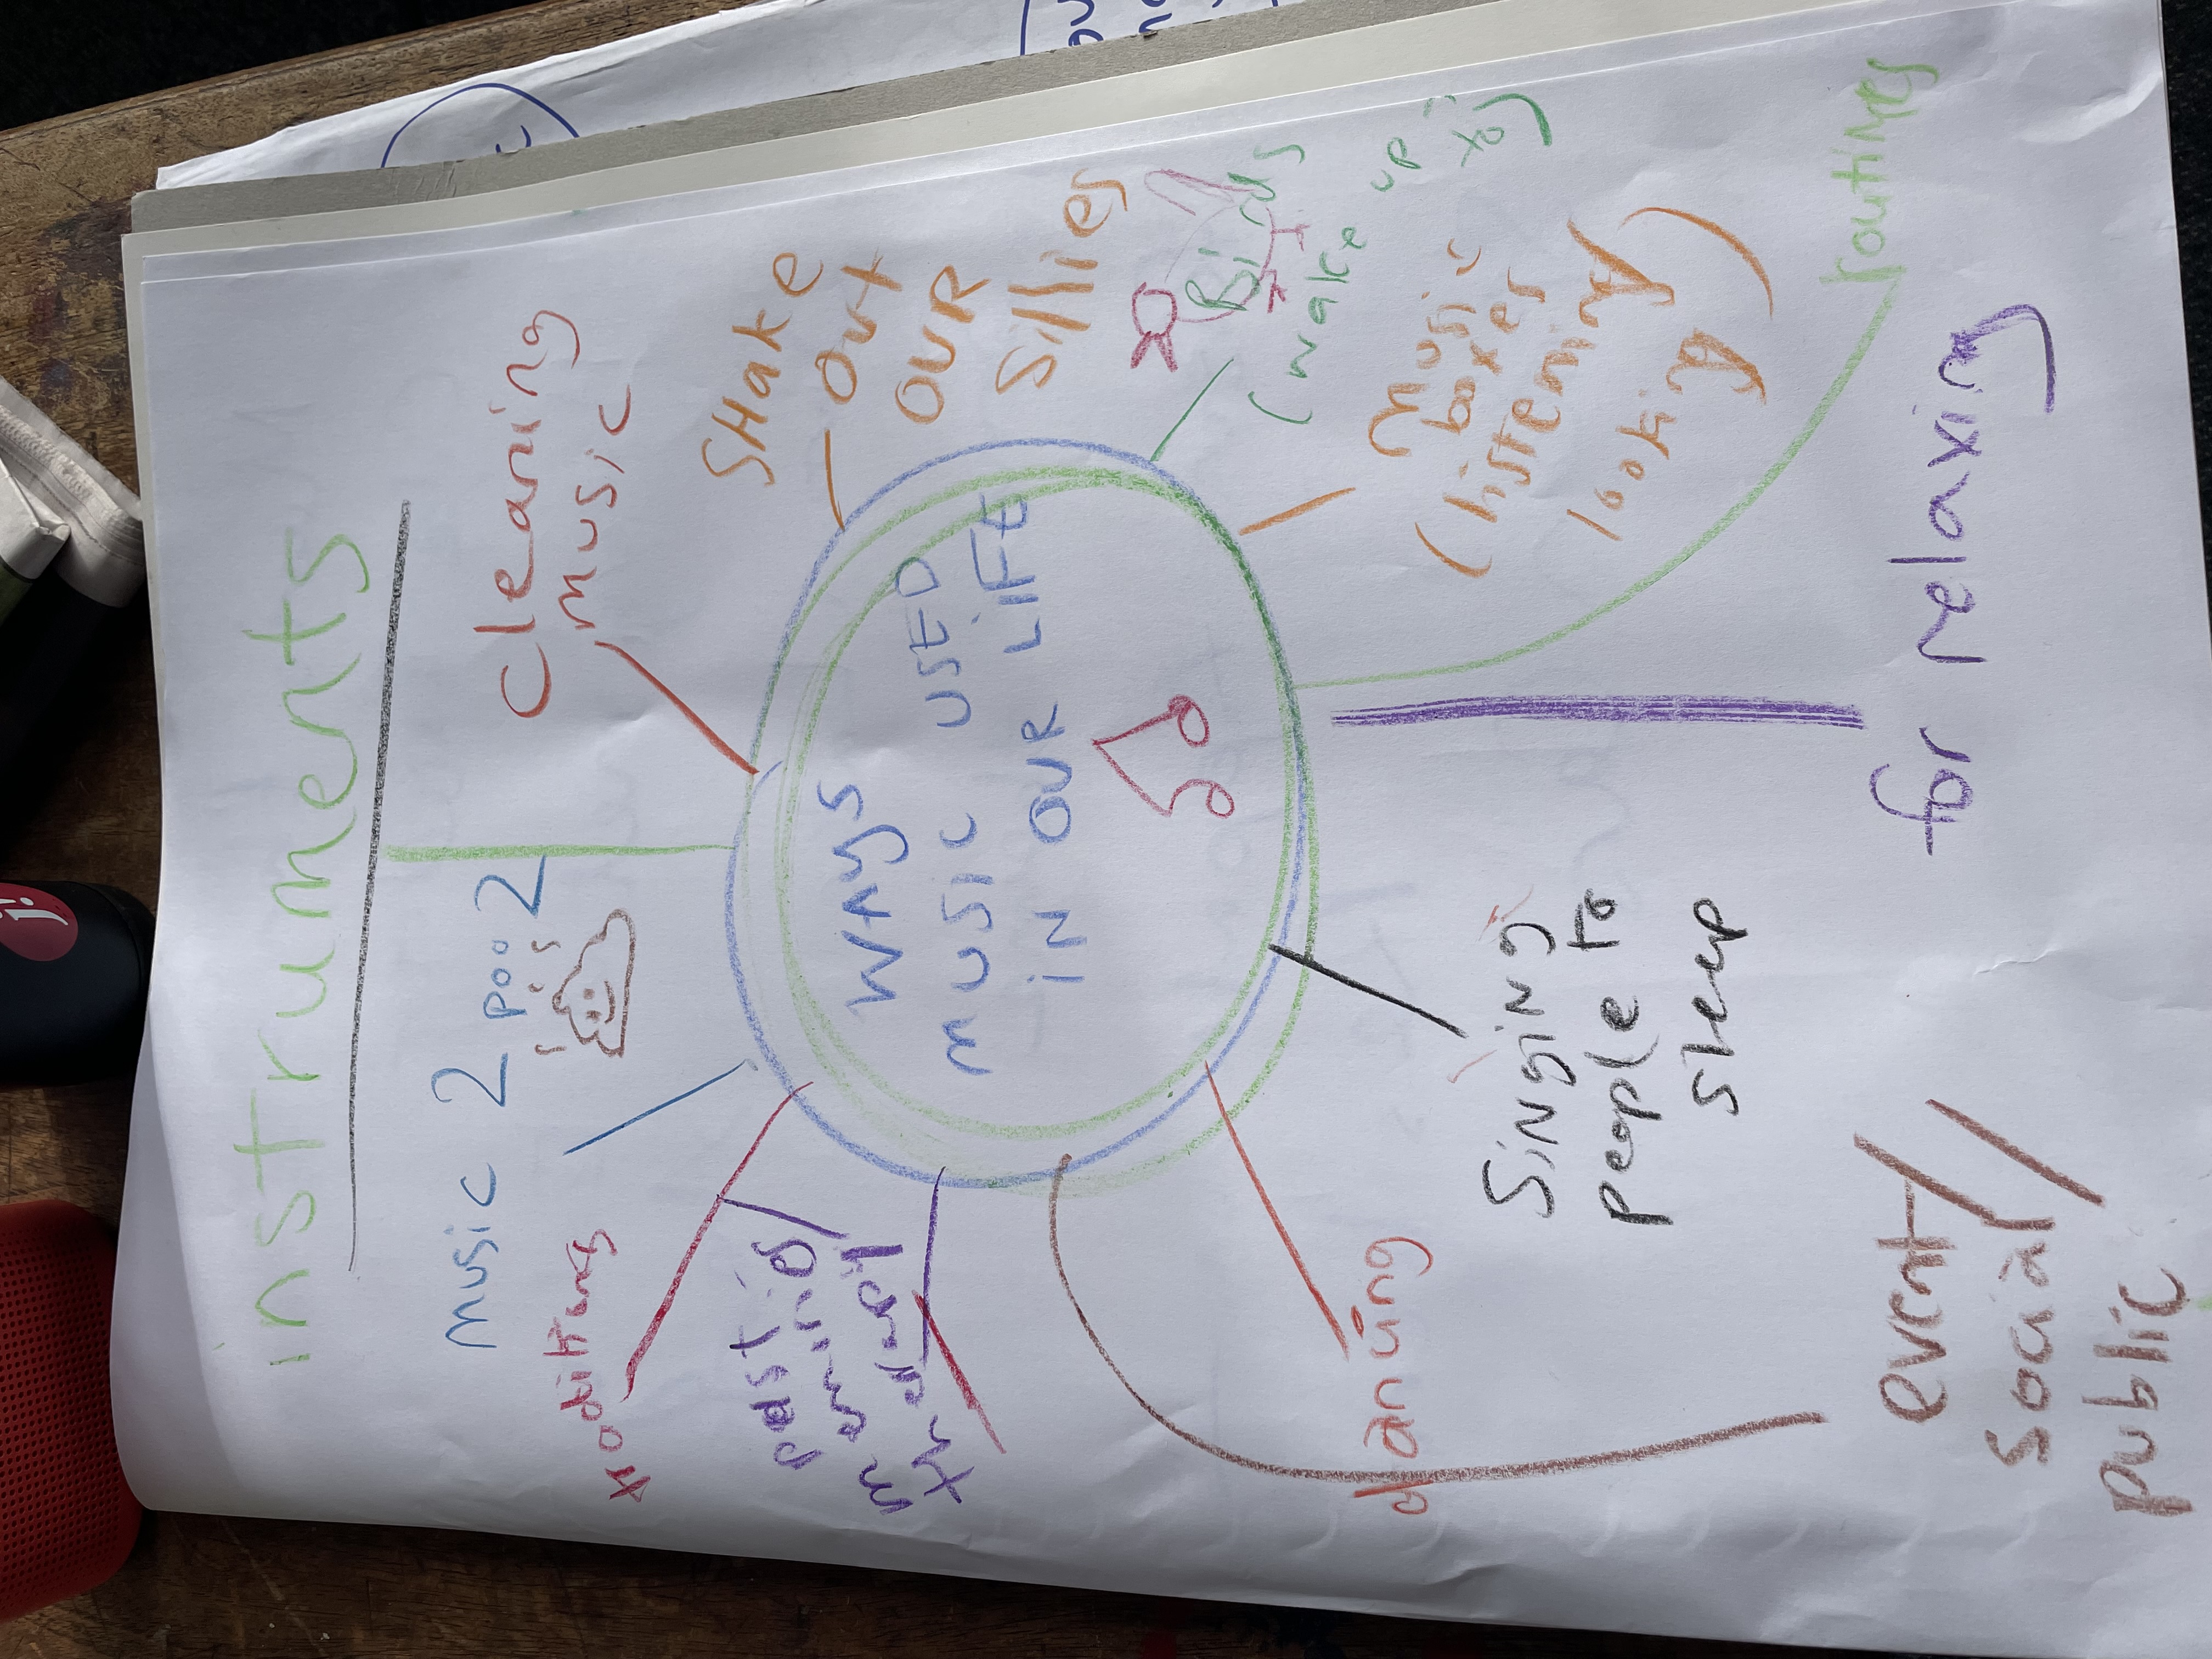 instruments
cleaning
music
music 2 poo 2
SHake
out
OUR
Sillies
WAYS
MUSIC USED
IN OUR LIFE
Birds
(wake up
to)
music
boxes
(listening/
looking)
routines
for relaxing
Singing
people to
sleep
dancing
event/
social/
public
past
memories